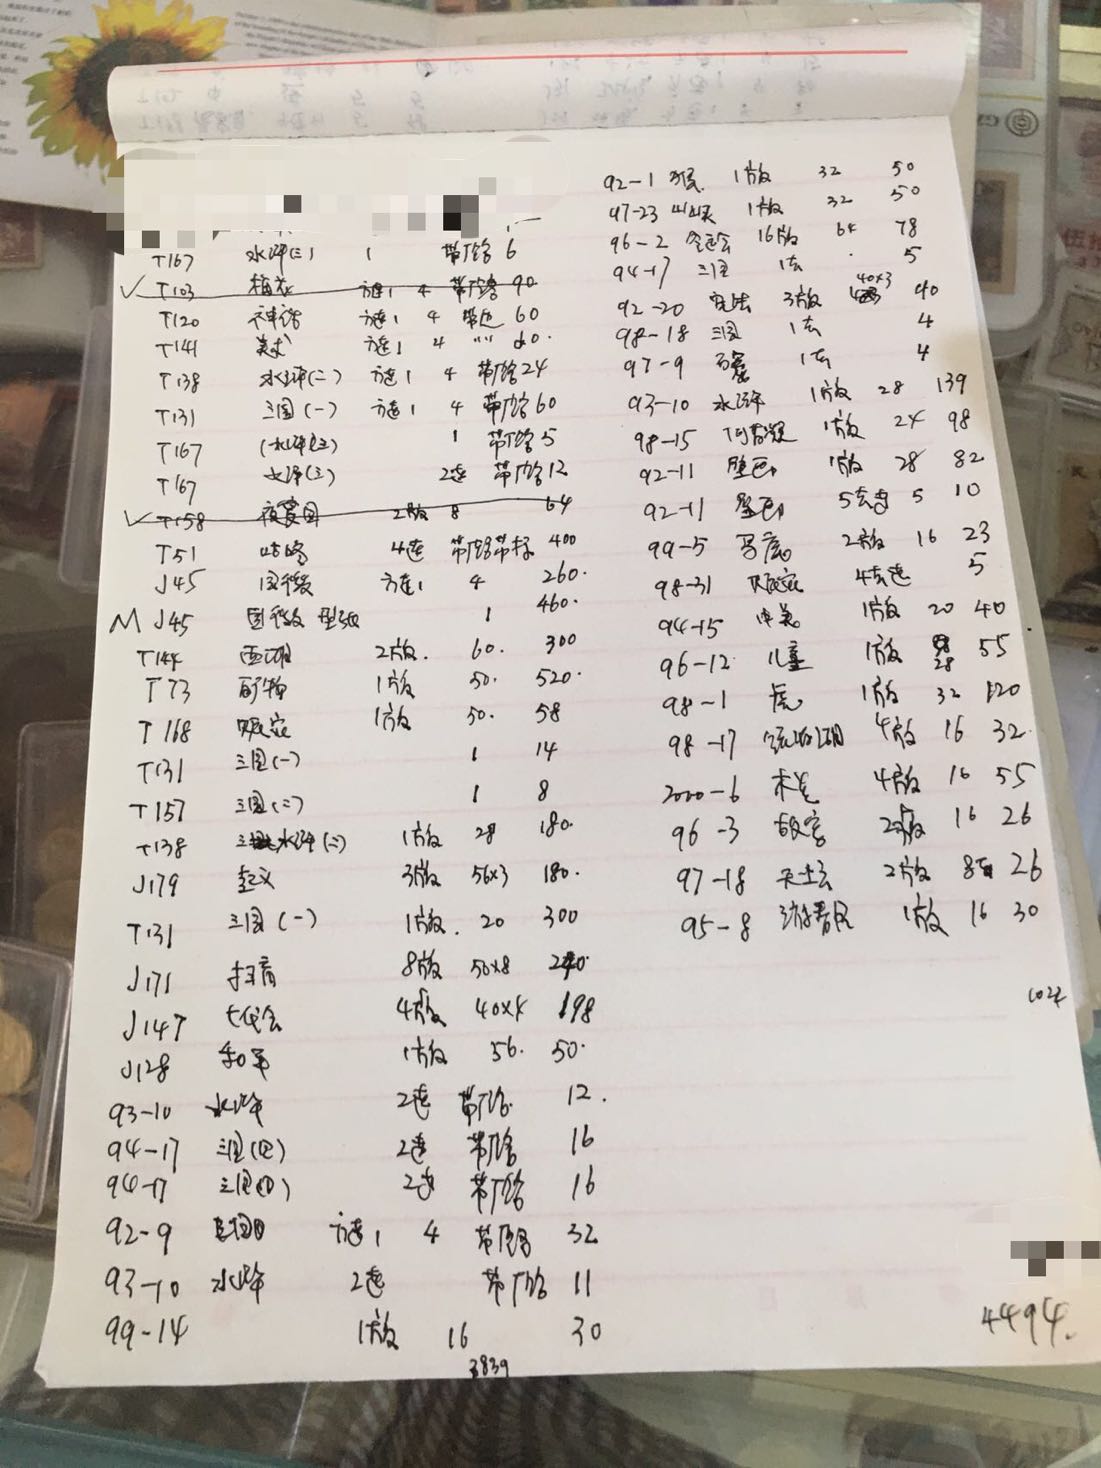 T167 水浒(三) 1 带厂铭 6
T103 梅花 方连1 4 带厂铭 90
T120 方连1 4 带边 60
T141 美术 方连1 4 " " 60.
T138 水浒(二) 方连1 4 带厂铭 24
T131 三国(一) 方连1 4 带厂铭 60
T167 (水浒三) 1 带厂铭 5
T167 水浒(三) 2连 带厂铭 12
T158 夜宴图 2版 8 64
T51 咕咚 4连 带厂铭带标 400
J45 国徽 方连1 4 260.
J45 国徽 型张 1 460.
T144 西湖 2版. 60. 300
T73 矿物 1版 50. 520.
T168 赈灾 1版 50. 58
T131 三国(一) 1 14
T157 三国(二) 1 8
T138 水浒(二) 1版 28 180.
J179 起义 3版 56x3 180.
T131 三国(一) 1版. 20 300
J171 扫盲 8版 50x8 240.
J147 七代会 4版 40x4 198
J128 和平 1版 56. 50.
93-10 水浒 2连 带厂铭. 12.
94-17 三国(四) 2连 带厂铭 16
94-17 三国(四) 2连 带厂铭 16
92-9 方连1 4 带厂铭 32
93-10 水浒 2连 带厂铭 11
99-14 1版 16 30
3839
92-1 猴. 1版 32 50
97-23 山峡 1版 32 50
96-2 冬运会 16版 64 78
94-17 三国 1套 5
92-20 宪法 3版 40x3 40
98-18 三国 1套 4
97-9 1套 4
93-10 水浒 1版 28 139
98-15 何香凝 1版 24 98
92-11 壁画 1版 28 82
92-11 壁画 5 10
99-5 马鹿 2版 16 23
98-31 赈灾 5
94-15 中美 1版 20 40
96-12 儿童 1版 28 55
98-1 虎 1版 32 120
98-17 4版 16 32.
2000-6 木兰 4版 16 55
96-3 故宫 2版 16 26
97-18 天坛 2版 8 26
95-8 1版 16 30
4494.